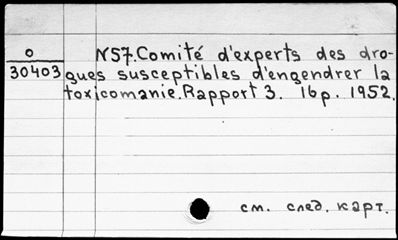 O
30403
N57. Comité d'experts des dro-
gues susceptibles d'engendrer la
toxicomanie. Rapport 3. 16p. 1952.
см. след. карт.